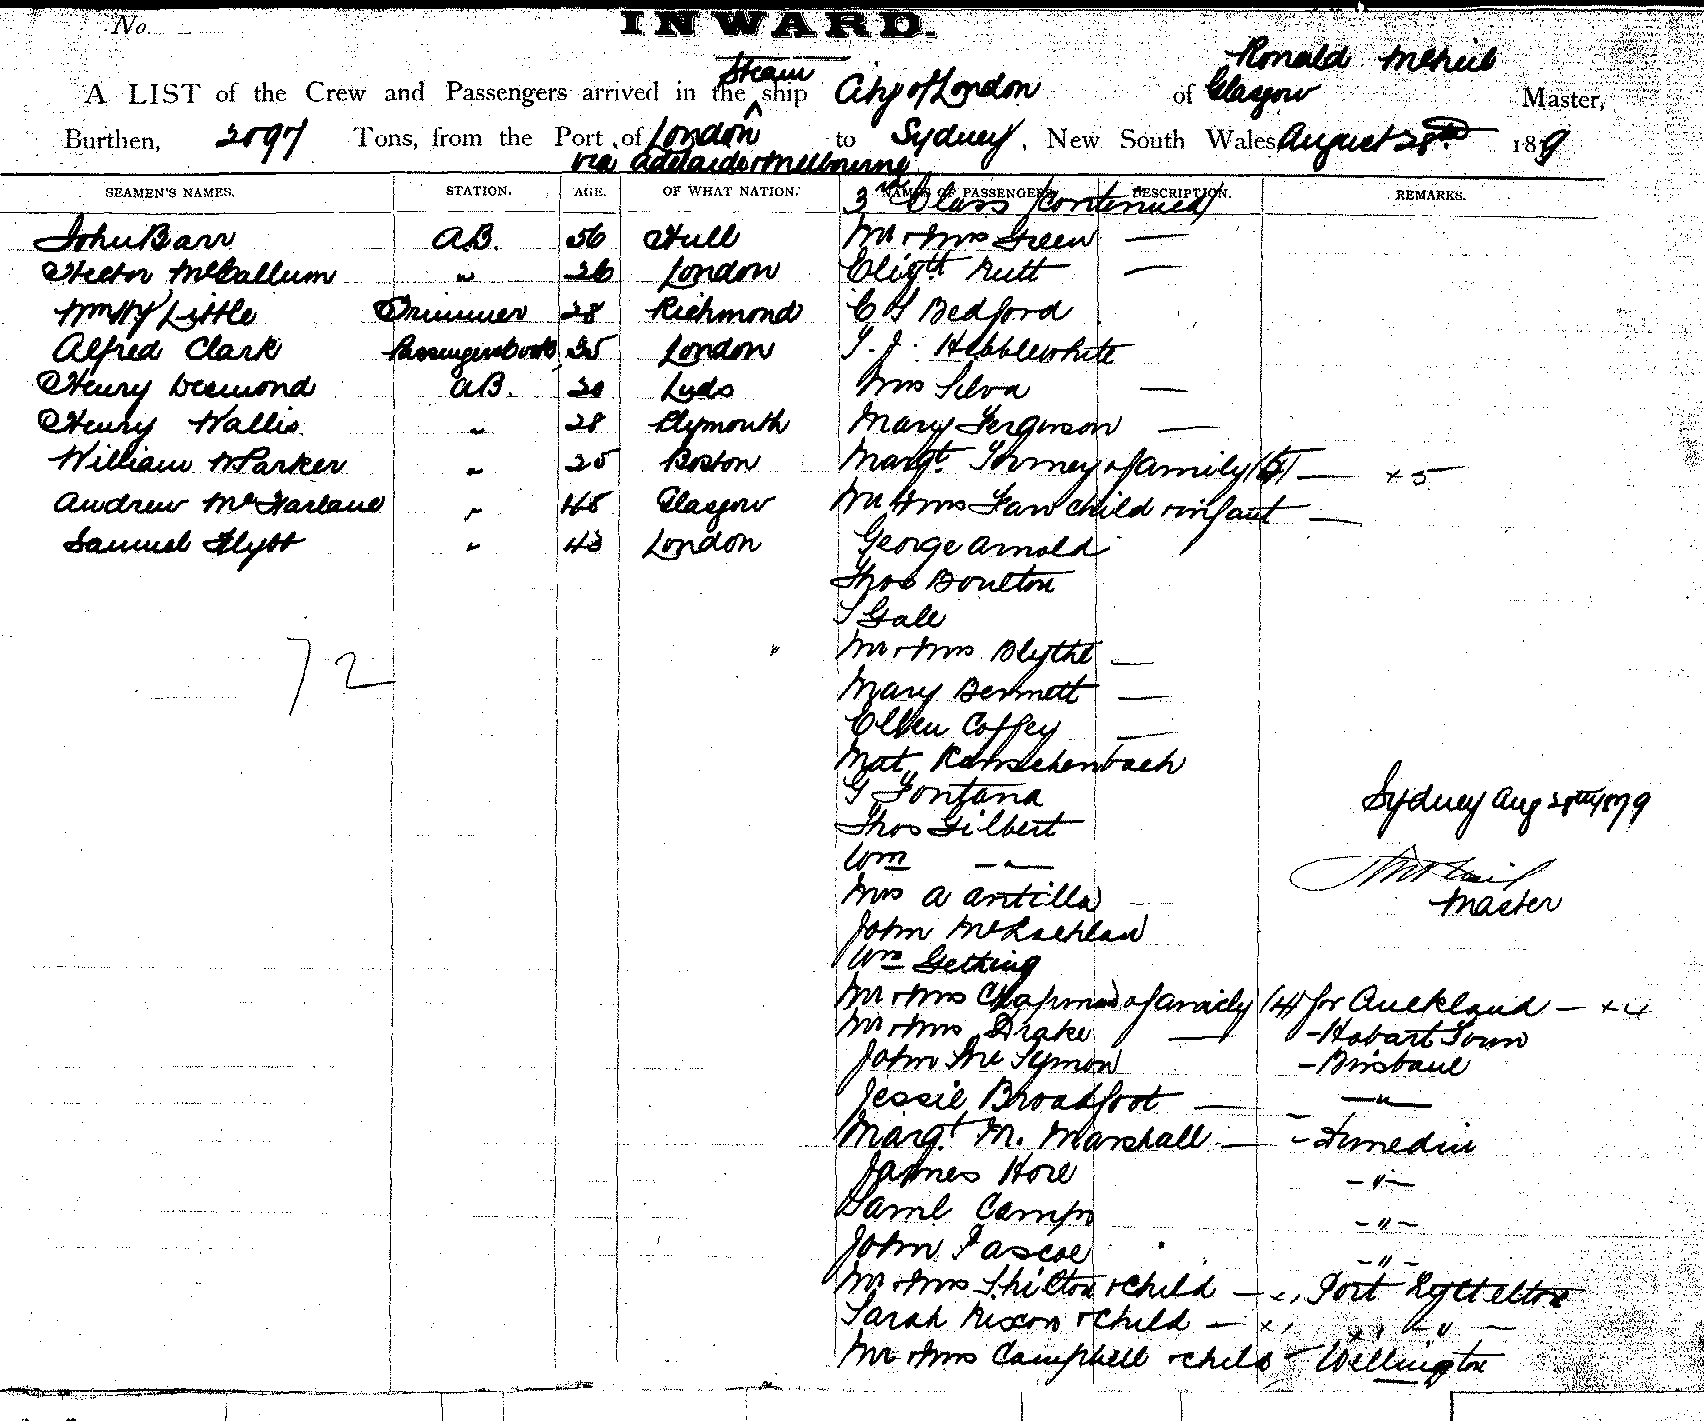 No.
INWARD.
A LIST of the Crew and Passengers arrived in the Steam ship City of London of Glasgow Ronald McNeil Master,
Burthen, 2097 Tons, from the Port of London to Sydney, New South Wales August 28th 1879
via Adelaide & Melbourne
SEAMEN'S NAMES. STATION. AGE. OF WHAT NATION. NAMES OF PASSENGERS. DESCRIPTION. REMARKS.
3rd Class (continued)
John Barr A.B. 56 Hull Mr & Mrs Green —
Hector McCallum " 26 London Elizth Nutt —
Wm Hy Little Trimmer 28 Richmond C H Bedford
Alfred Clark Passengers Cook 35 London T. J. Hebblewhite
Henry Desmond A.B. 20 Leeds Mrs Silva —
Henry Wallis " 28 Plymouth Mary Ferguson —
William W Parker " 25 Boston Margt. Tormey & family (5) — + 5
Andrew McFarlane " 45 Glasgow Mr & Mrs Law child & infant —
Samuel Flytt " 43 London George Arnold
Thos Boulton
S Gale
72 Mr & Mrs Blythe —
Mary Bennett —
Ellen Coffey —
Mat. Ramschenbach
G Fontana Sydney Aug 28th 1879
Thos Gilbert
Wm — " —
Mrs A Antilla Master
John McLachlan
Wm Gething
Mr & Mrs Chapman & family (4) for Auckland — + 4
Mr & Mrs Drake — - Hobart Town
John McSymon - Brisbane
Jessie Broadfoot — — " —
Margt. M. Marshall — - Dunedin
James Hore - " -
Saml Camp - " -
John Pascoe - " -
Mr & Mrs Shilton & child — Port Lyttelton
Sarah Nixon & child — " —
Mr & Mrs Campbell & child - Wellington